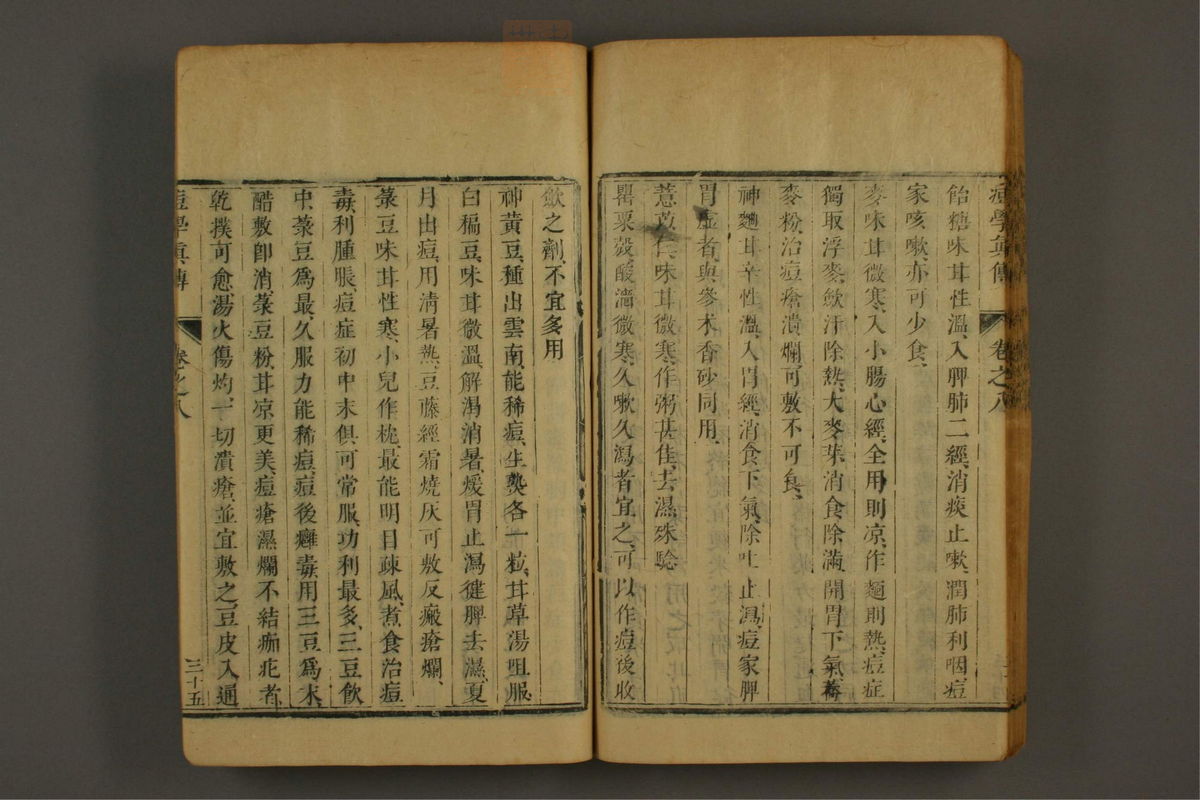 痘學真傳 卷之八
飴糖味甘性溫、入脾肺二經、消痰止嗽、潤肺利咽、痘
家咳嗽、亦可少食、
麥味甘微寒、入小腸心經、全用則凉、作麵則熱、痘症
獨取浮麥、歛汗除熱、大麥芽消食除滿、開胃下氣、蕎
麥粉、治痘瘡潰爛、可敷不可食、
神麯甘辛性溫、入胃經、消食下氣、除吐止瀉、痘家脾
胃虛者、與參术香砂同用、
薏苡仁味甘微寒、作粥甚佳、去濕殊騐
罌粟殼、酸濇微寒、久嗽久瀉者宜之、可以作痘後收
歛之劑、不宜多用
神黃豆、種出雲南、能稀痘、生熟各一粒、甘草湯咀服
白稨豆、味甘微溫、解渴消暑、煖胃止瀉、徤脾去濕、夏
月出痘、用淸暑熱、豆藤經霜燒灰、可敷反瘢瘡爛、
菉豆味甘性寒、小兒作枕、最能明目疎風、煮食治痘
毒、利腫脹、痘症初中末俱可常服、功利最多、三豆飲
中、菉豆爲最、久服力能稀痘、痘後癰毒、用三豆爲末、
醋敷卽消、菉豆粉、甘凉更美、痘瘡濕爛不結痂疕者、
乾撲可愈、湯火傷灼、一切潰瘡、並宜敷之、豆皮入通
痘學真傳 卷之八 三十五